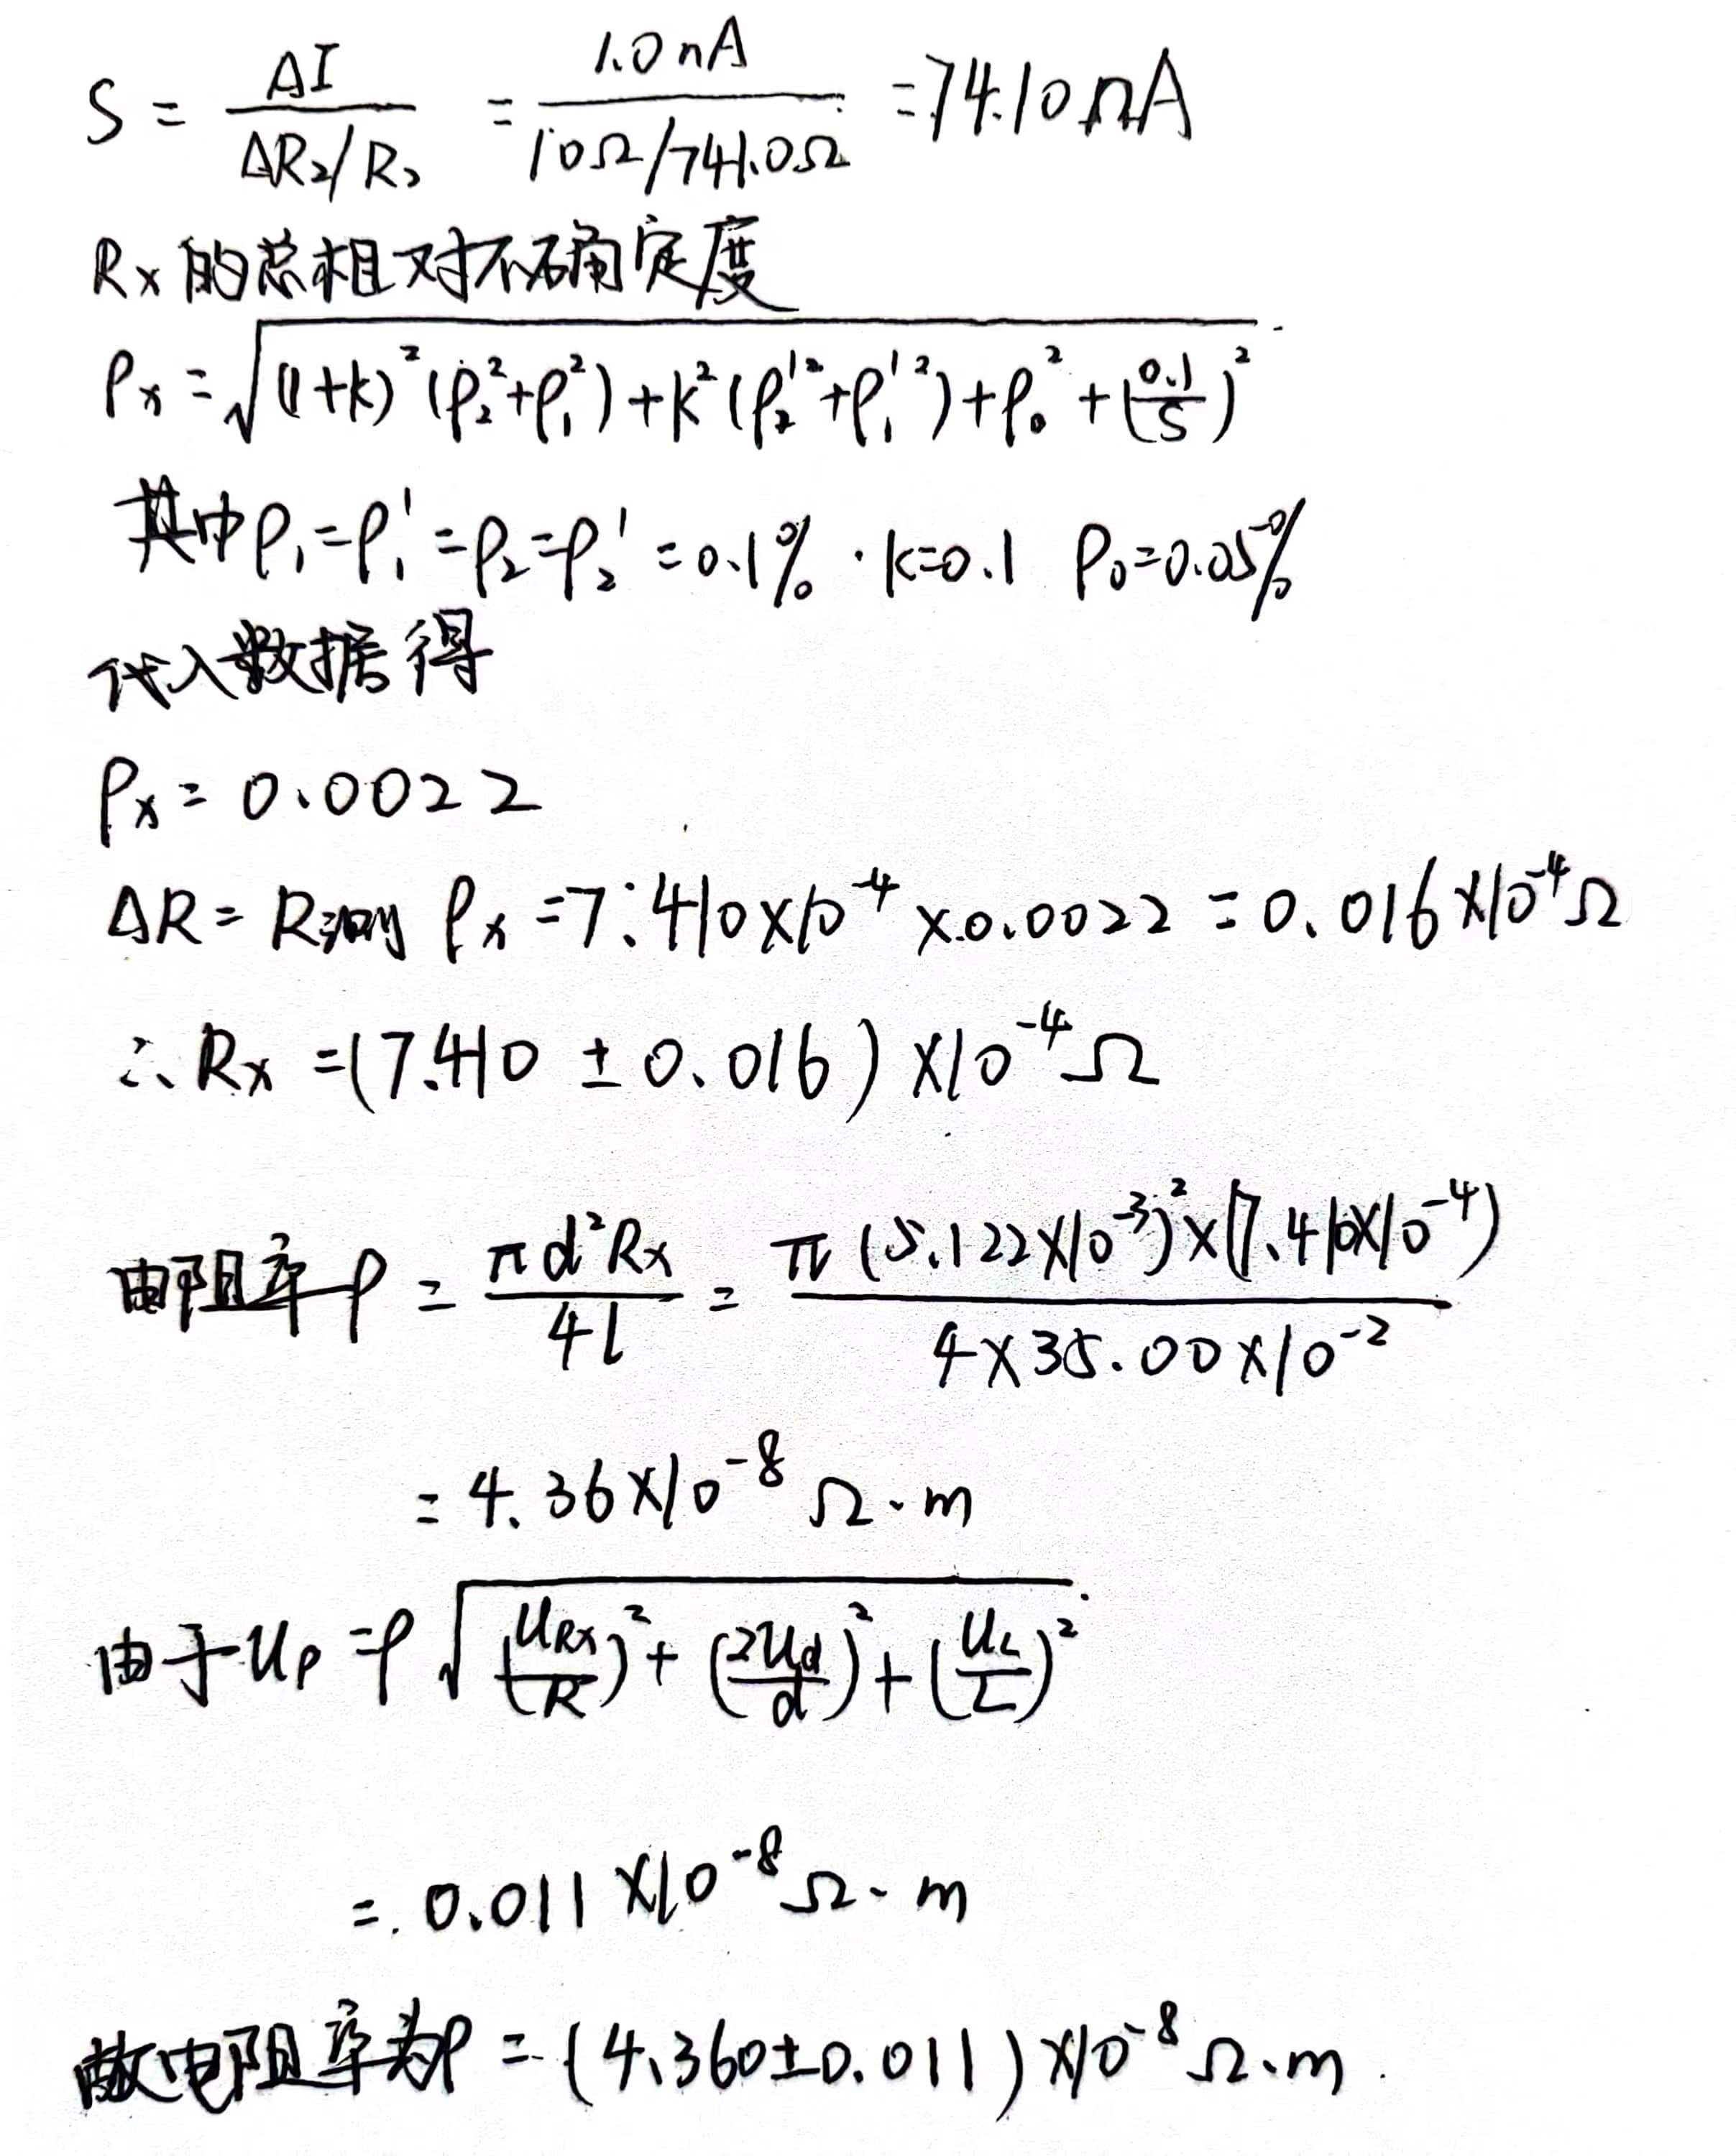 S = ΔI / (ΔR₂/R₂) = 1.0nA / (10Ω/741.0Ω) = 74.10nA
Rx的总相对不确定度
ρx = √((1+k)²(ρ₂²+ρ₁²)+k²(ρ₂'²+ρ₁'²)+ρ₀²+(0.1/S)²)
其中ρ₁=ρ₁'=ρ₂=ρ₂'=0.1% · k=0.1 ρ₀=0.05%
代入数据得
ρx = 0.0022
ΔR = R测 ρx = 7.410×10⁻⁴ × 0.0022 = 0.016×10⁻⁴Ω
∴ Rx = (7.410 ± 0.016) ×10⁻⁴Ω
电阻率ρ = πd²Rx / 4l = π(5.122×10⁻³)²×(7.410×10⁻⁴) / 4×35.00×10⁻²
= 4.36×10⁻⁸ Ω·m
由于Uρ = ρ√((U_Rx/R)²+(2U_d/d)²+(U_L/L)²)
= 0.011×10⁻⁸Ω·m
故电阻率为ρ = (4.360±0.011)×10⁻⁸Ω·m.